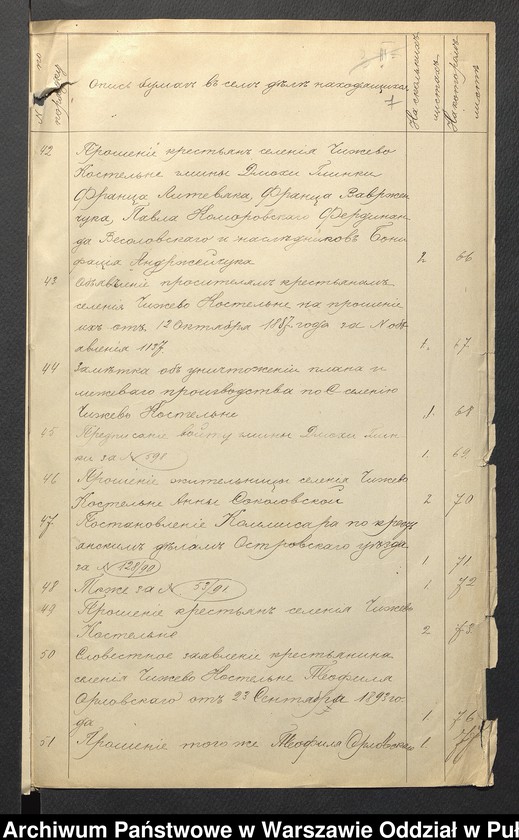 № по порядку
Опись бумагъ въ семъ дѣлѣ находящихся
На сколькихъ листахъ
На которомъ листѣ
42 Прошеніе крестьянъ селенія Чижево
Костельне гмины Дмохи Глинки
Франца Литевяка, Франца Вавржен
чука, Павла Коморовскаго Фердинан
да Весоловскаго и наслѣдниковъ Бони
фація Андржейчука 2 66
43 Объявленіе просителямъ крестьянамъ
селенія Чижево Костельне на прошеніе
ихъ отъ 12 Октября 1887 года за № объ
явленія 1127 1. 67
44 Замѣтка объ уничтоженіи плана и
межеваго производства по с селенію
Чижево Костельне 1 68
45 Предписаніе войту гмины Дмохи Глин
ки за № 591 1. 69
46 Прошеніе жительницы селенія Чижево
Костельне Анны Соколовской 2 70
47. Постановленіе Коммисара по крест
янскимъ дѣламъ Островскаго уѣзда
за № 128/90 1 71
48 Тоже за № 53/91 1 72
49 Прошеніе крестьянъ селенія Чижево
Костельне 2 73
50 Словестное заявленіе крестьянина
селенія Чижево Костельне Теофиля
Орловскаго отъ 23 Сентября 1893 го
да 1 76
51 Прошеніе того же Теофиля Орловскаго 1 77
Archiwum Państwowe w Warszawie Oddział w Puł